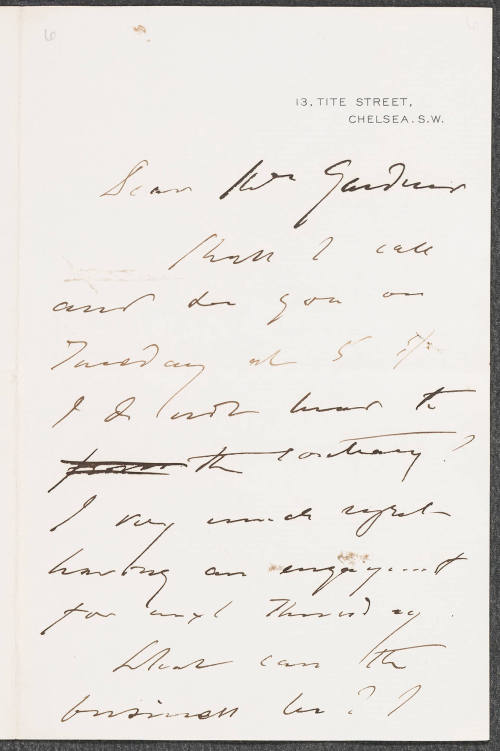 6
13, TITE STREET,
CHELSEA. S.W.
Dear Mrs Gardner
Shall I call
and see you on
Tuesday at 5 if
I do not hear to
the contrary?
I very much regret
having an engagement
for next Thursday.
What can the
business be? I